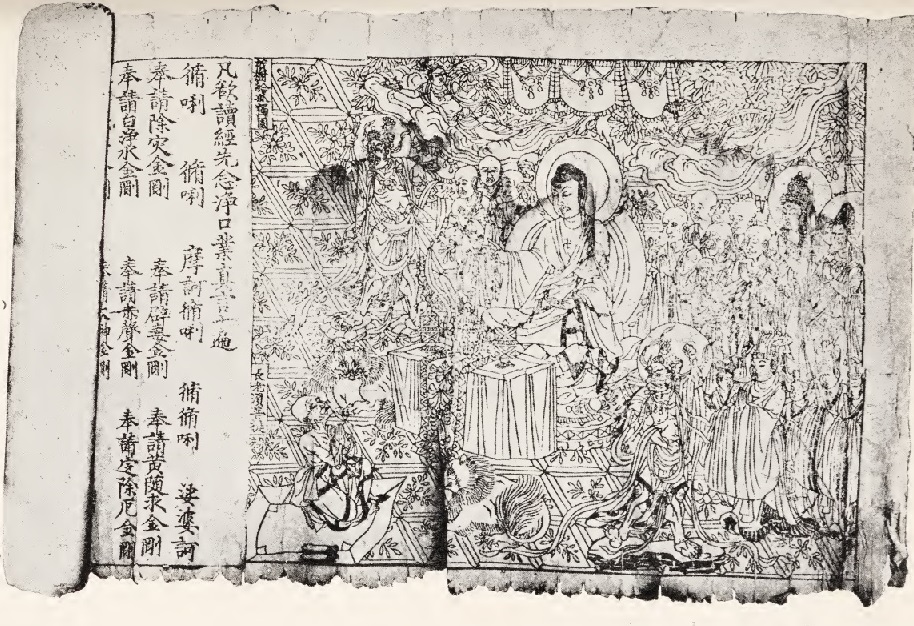 祇樹給孤獨園
長老須菩提
凡欲讀經先念淨口業真言一遍
脩唎 脩唎 摩訶脩唎 脩脩唎 娑婆訶
奉請除灾金剛 奉請辟毒金剛 奉請黃隨求金剛
奉請白淨水金剛 奉請赤聲金剛 奉請定除厄金剛
神金剛